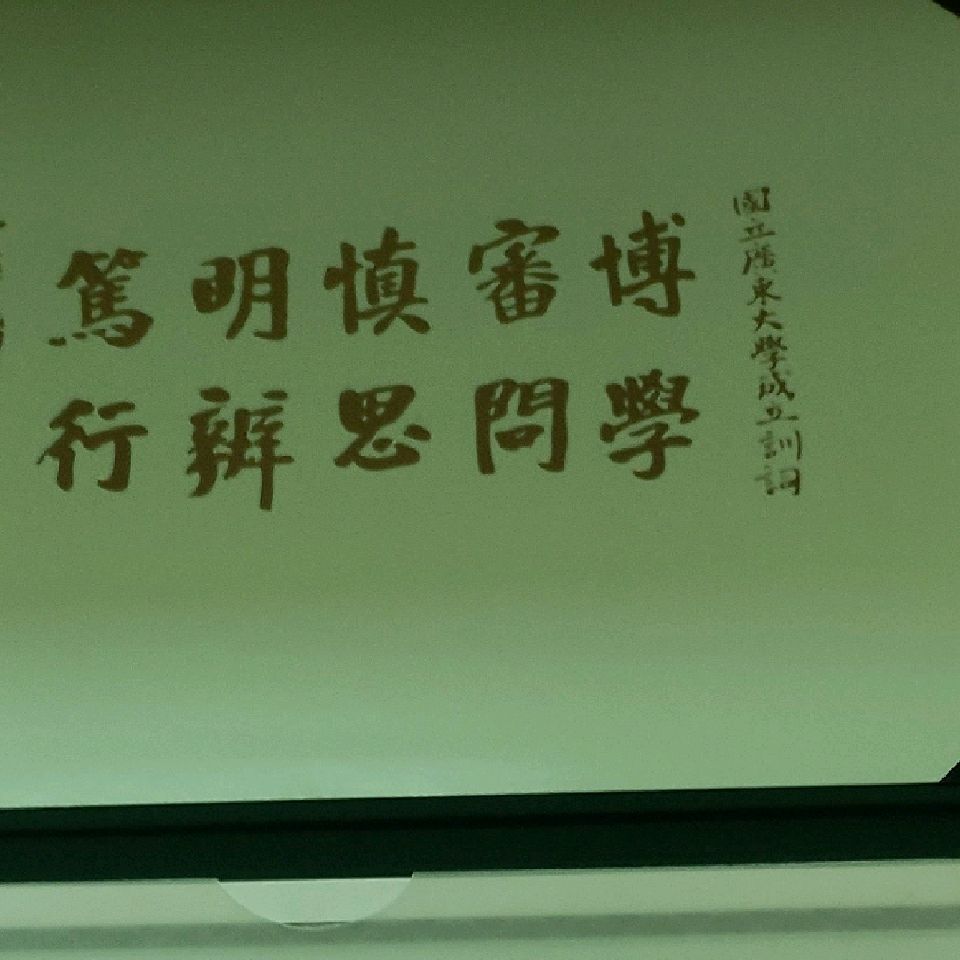 國立廣東大學成立訓詞
博學
審問
慎思
明辨
篤行